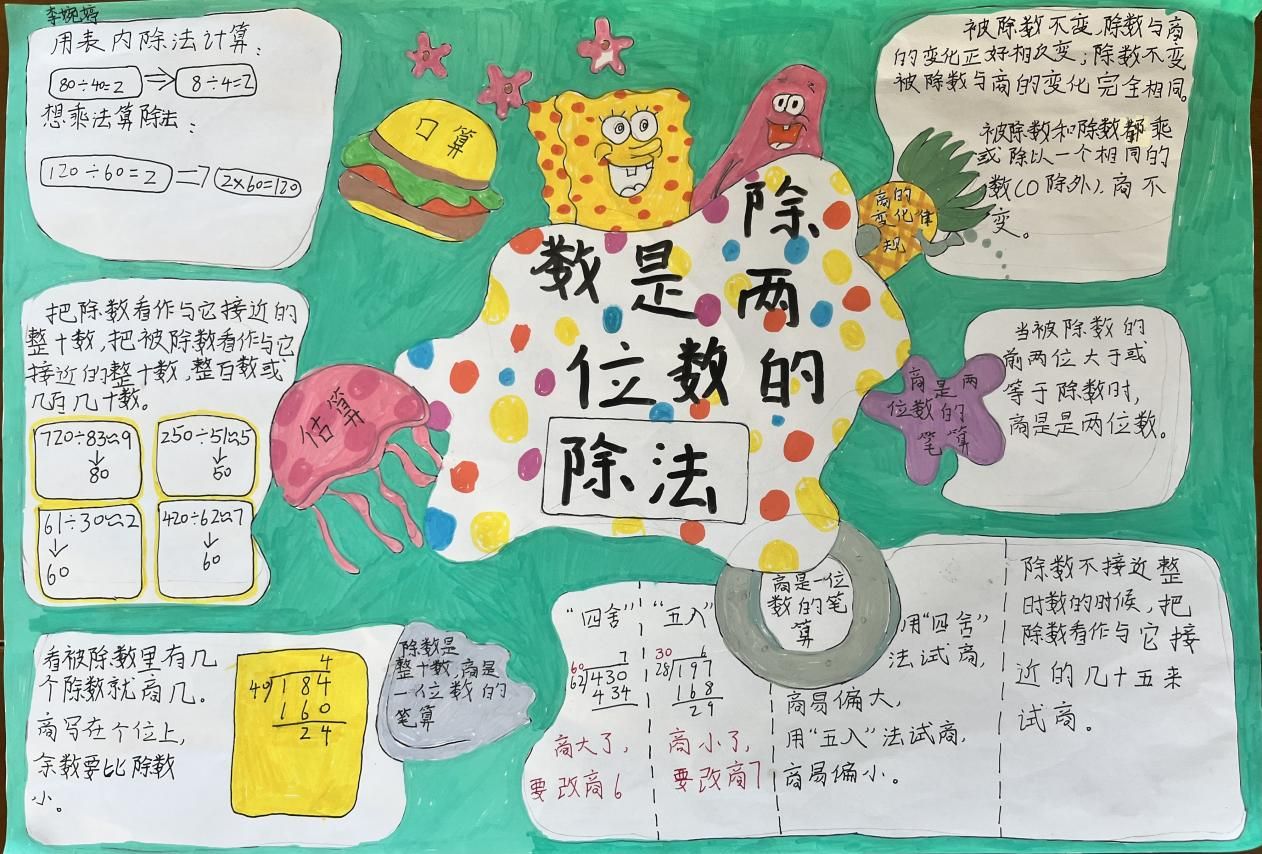 李婉婷
用表内除法计算:
80÷40=2 ⇒ 8÷4=2
想乘法算除法:
120÷60=2 ⇒ 2×60=120
口算
除
数是两
位数的
除法
被除数不变,除数与商
的变化正好相反变;除数不变
被除数与商的变化完全相同。
被除数和除数都乘
或除以一个相同的
数(0除外),商不
变。
商的
变化律
规
把除数看作与它接近的
整十数,把被除数看作与它
接近的整十数,整百数或
几百几十数。
720÷83≈9
↓
80
250÷51≈5
↓
50
61÷30≈2
↓
60
420÷62≈7
↓
60
估算
当被除数的
前两位大于或
等于除数时,
商是是两位数。
商是两
位数的
笔算
看被除数里有几
个除数就商几。
商写在个位上,
余数要比除数
小。
4
40)184
160
24
除数是
整十数,商是
一位数的
笔算
商是一位
数的笔
算
“四舍”
60 7
62)430
434
商大了,
要改商6
“五入”
30 6
28)197
168
29
商小了,
要改商7
用“四舍”
法试商,
商易偏大,
用“五入”法试商,
商易偏小。
除数不接近整
时数的时候,把
除数看作与它接
近的几十五来
试商。